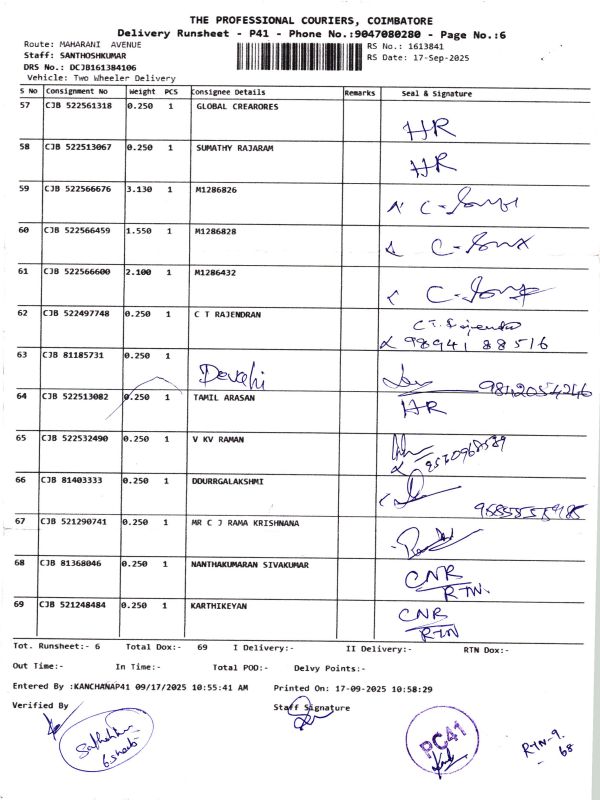 THE PROFESSIONAL COURIERS, COIMBATORE
Delivery Runsheet - P41 - Phone No.:9047080280 - Page No.:6
Route: MAHARANI AVENUE
RS No.: 1613841
Staff: SANTHOSHKUMAR
RS Date: 17-Sep-2025
DRS No.: DCJB161384106
Vehicle: Two Wheeler Delivery
S No Consignment No Weight PCS Consignee Details Remarks Seal & Signature
57 CJB 522561318 0.250 1 GLOBAL CREARORES
HR
58 CJB 522513067 0.250 1 SUMATHY RAJARAM
HR
59 CJB 522566676 3.130 1 M1286826
60 CJB 522566459 1.550 1 M1286828
61 CJB 522566600 2.100 1 M1286432
62 CJB 522497748 0.250 1 C T RAJENDRAN
98941 88516
63 CJB 81185731 0.250 1
Devaki
9842054246
64 CJB 522513082 0.250 1 TAMIL ARASAN
HR
65 CJB 522532490 0.250 1 V KV RAMAN
66 CJB 81403333 0.250 1 DDURRGALAKSHMI
67 CJB 521290741 0.250 1 MR C J RAMA KRISHNANA
68 CJB 81368046 0.250 1 NANTHAKUMARAN SIVAKUMAR
CNR
RTN
69 CJB 521248484 0.250 1 KARTHIKEYAN
CNR
RTN
Tot. Runsheet:- 6 Total Dox:- 69 I Delivery:- II Delivery:- RTN Dox:-
Out Time:- In Time:- Total POD:- Delvy Points:-
Entered By :KANCHANAP41 09/17/2025 10:55:41 AM Printed On: 17-09-2025 10:58:29
Verified By Staff Signature
6 sheets
PC41
RTN-9
68